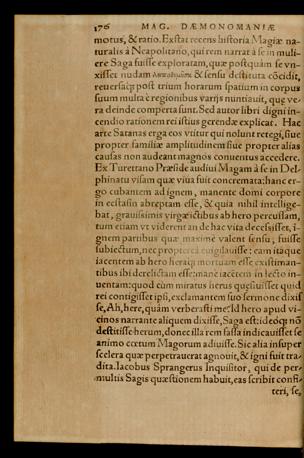 176 MAG. DÆMONOMANIÆ
motus, & ratio. Exstat recens historia Magiæ na-
turalis à Neapolitano, qui rem narrat à se in muli-
ere Saga fuisse exploratam, quæ postquàm se vn-
xisset nudam & sensu destituta cōcidit,
reuersaq́; post trium horarum spatium in corpus
suum multa è regionibus varijs nuntiauit, quę ve-
ra deinde comperta sunt. Sed autor libri digni in-
cendio rationem rei istius gerendæ explicat. Hac
arte Satanas erga eos vtitur qui nolunt retegi, siue
propter familiæ amplitudinem siue propter alias
causas non audeant magnos conuentus accedere.
Ex Turettano Præside audiui Magam à se in Del-
phinatu visam quæ viua fuit concremata: hanc er-
go cubantem ad ignem, manente domi corpore
in ecstasin abreptam esse, & quia nihil intellige-
bat, grauissimis virgæ ictibus ab hero percussam,
tum etiam vt viderent an de hac vita decessisset, i-
gnem partibus quæ maximè valent sensu, fuisse
subiectum, nec propterea euigilauisse: eam itáque
iacentem ab hero heraq́; mortuam esse existiman-
tibus ibi derelictam esse: manè iacētem in lecto in-
uentam: quod cùm miratus herus quęsiuisset quid
rei contigisset ipsi, exclamantem suo sermone dixis-
se, Ah, here, quàm verberasti me! Id hero apud vi-
cinos narrante aliquem dixisse, Saga est: ideóq; nō
destitisse herum, donec illa rem fassa indicauisset se
animo cœtum Magorum adiuisse. Sic alia insuper
scelera quæ perpetrauerat agnouit, & igni fuit tra-
dita. Iacobus Sprangerus Inquisitor, qui de per-
multis Sagis quæstionem habuit, eas scribit confi-
teri, se,